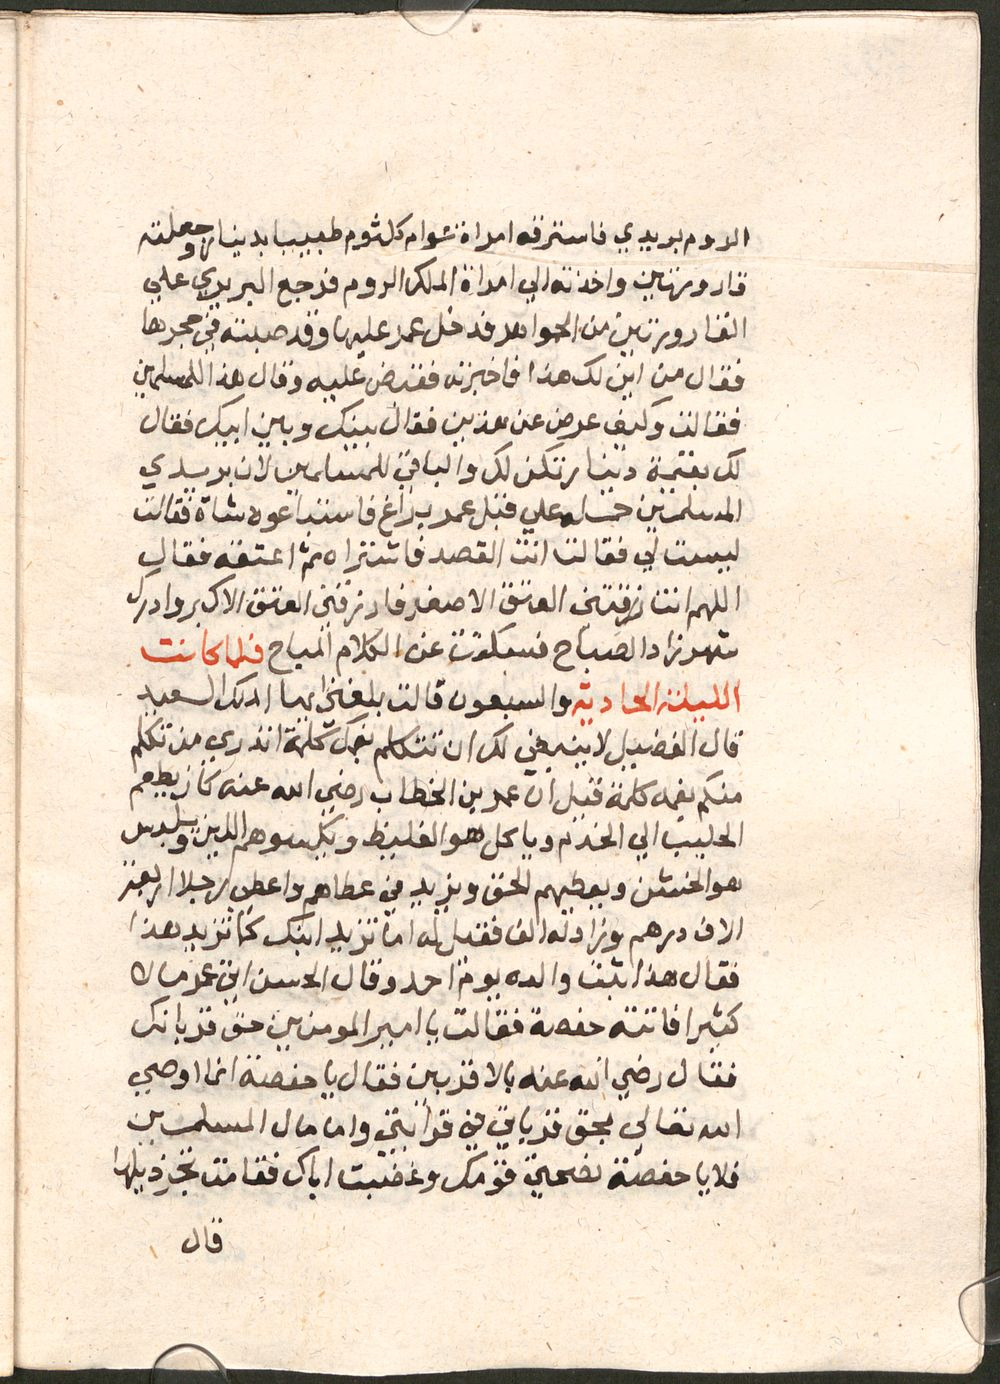 الروم بريدي فاسترقه امراة شوام كلثوم طيبا بدينار وجعلته
قارورتين واخذته الي امراة الملك الروم فرجع البريدي علي
القارورتين من الجواهر فدخل عمر عليها وقد صبته في حجرها
فقال من اين لك هذا فاخبرته فقبض عليه وقال هذا للمسلمين
فقالت وكيف عرض عن هذين فقال بينك وبين ابيك فقال
لك بقيمة دينار تكن لك والباقي للمسلمين لان بريدي
المسلمين حمله علي قبل عمر براع فاستداعوه شاة فقالت
ليست لي فقالت انت القصد فاشتراه ثم اعتقه فقال
اللهم انت رزقتني العتق الاصغر فارزقني العتق الاكبر وادرك
شهرزاد الصباح فسكتت عن الكلام المباح فلما كانت
الليلة الحادية والسبعون قالت بلغني ايها الملك السعيد
قال الفضيل لا ينبغي لك ان تتكلم بفمك كلمة اتدري من تكلم
منكم بفمه كلمة قيل ان عمر بن الخطاب رضي الله عنه كان يطعم
الحليب الي الخدم وياكل هو الغليظ ويكسوهم اللين ويلبس
هو الخشن ويعطيهم الحق ويزيد في عطاهم واعطي رجلا اربعة
الاف درهم وزاده الف فقيل له اما تزيد ابنك كما تزيد هذا
فقال هذا ثبت والده يوم احد وقال الحسن اتي عمر مالا
كثيرا فاتته حفصة فقالت يا امير المومنين حق قربانك
فقال رضي الله عنه بالاقربين فقال يا حفصة انما اوصي
الله تعالي بحق قرباتي في قرابتي واما مال المسلمين
فلا يا حفصة نصحتي قومك وغضبت اباك فقامت تجر ذيلها
قال